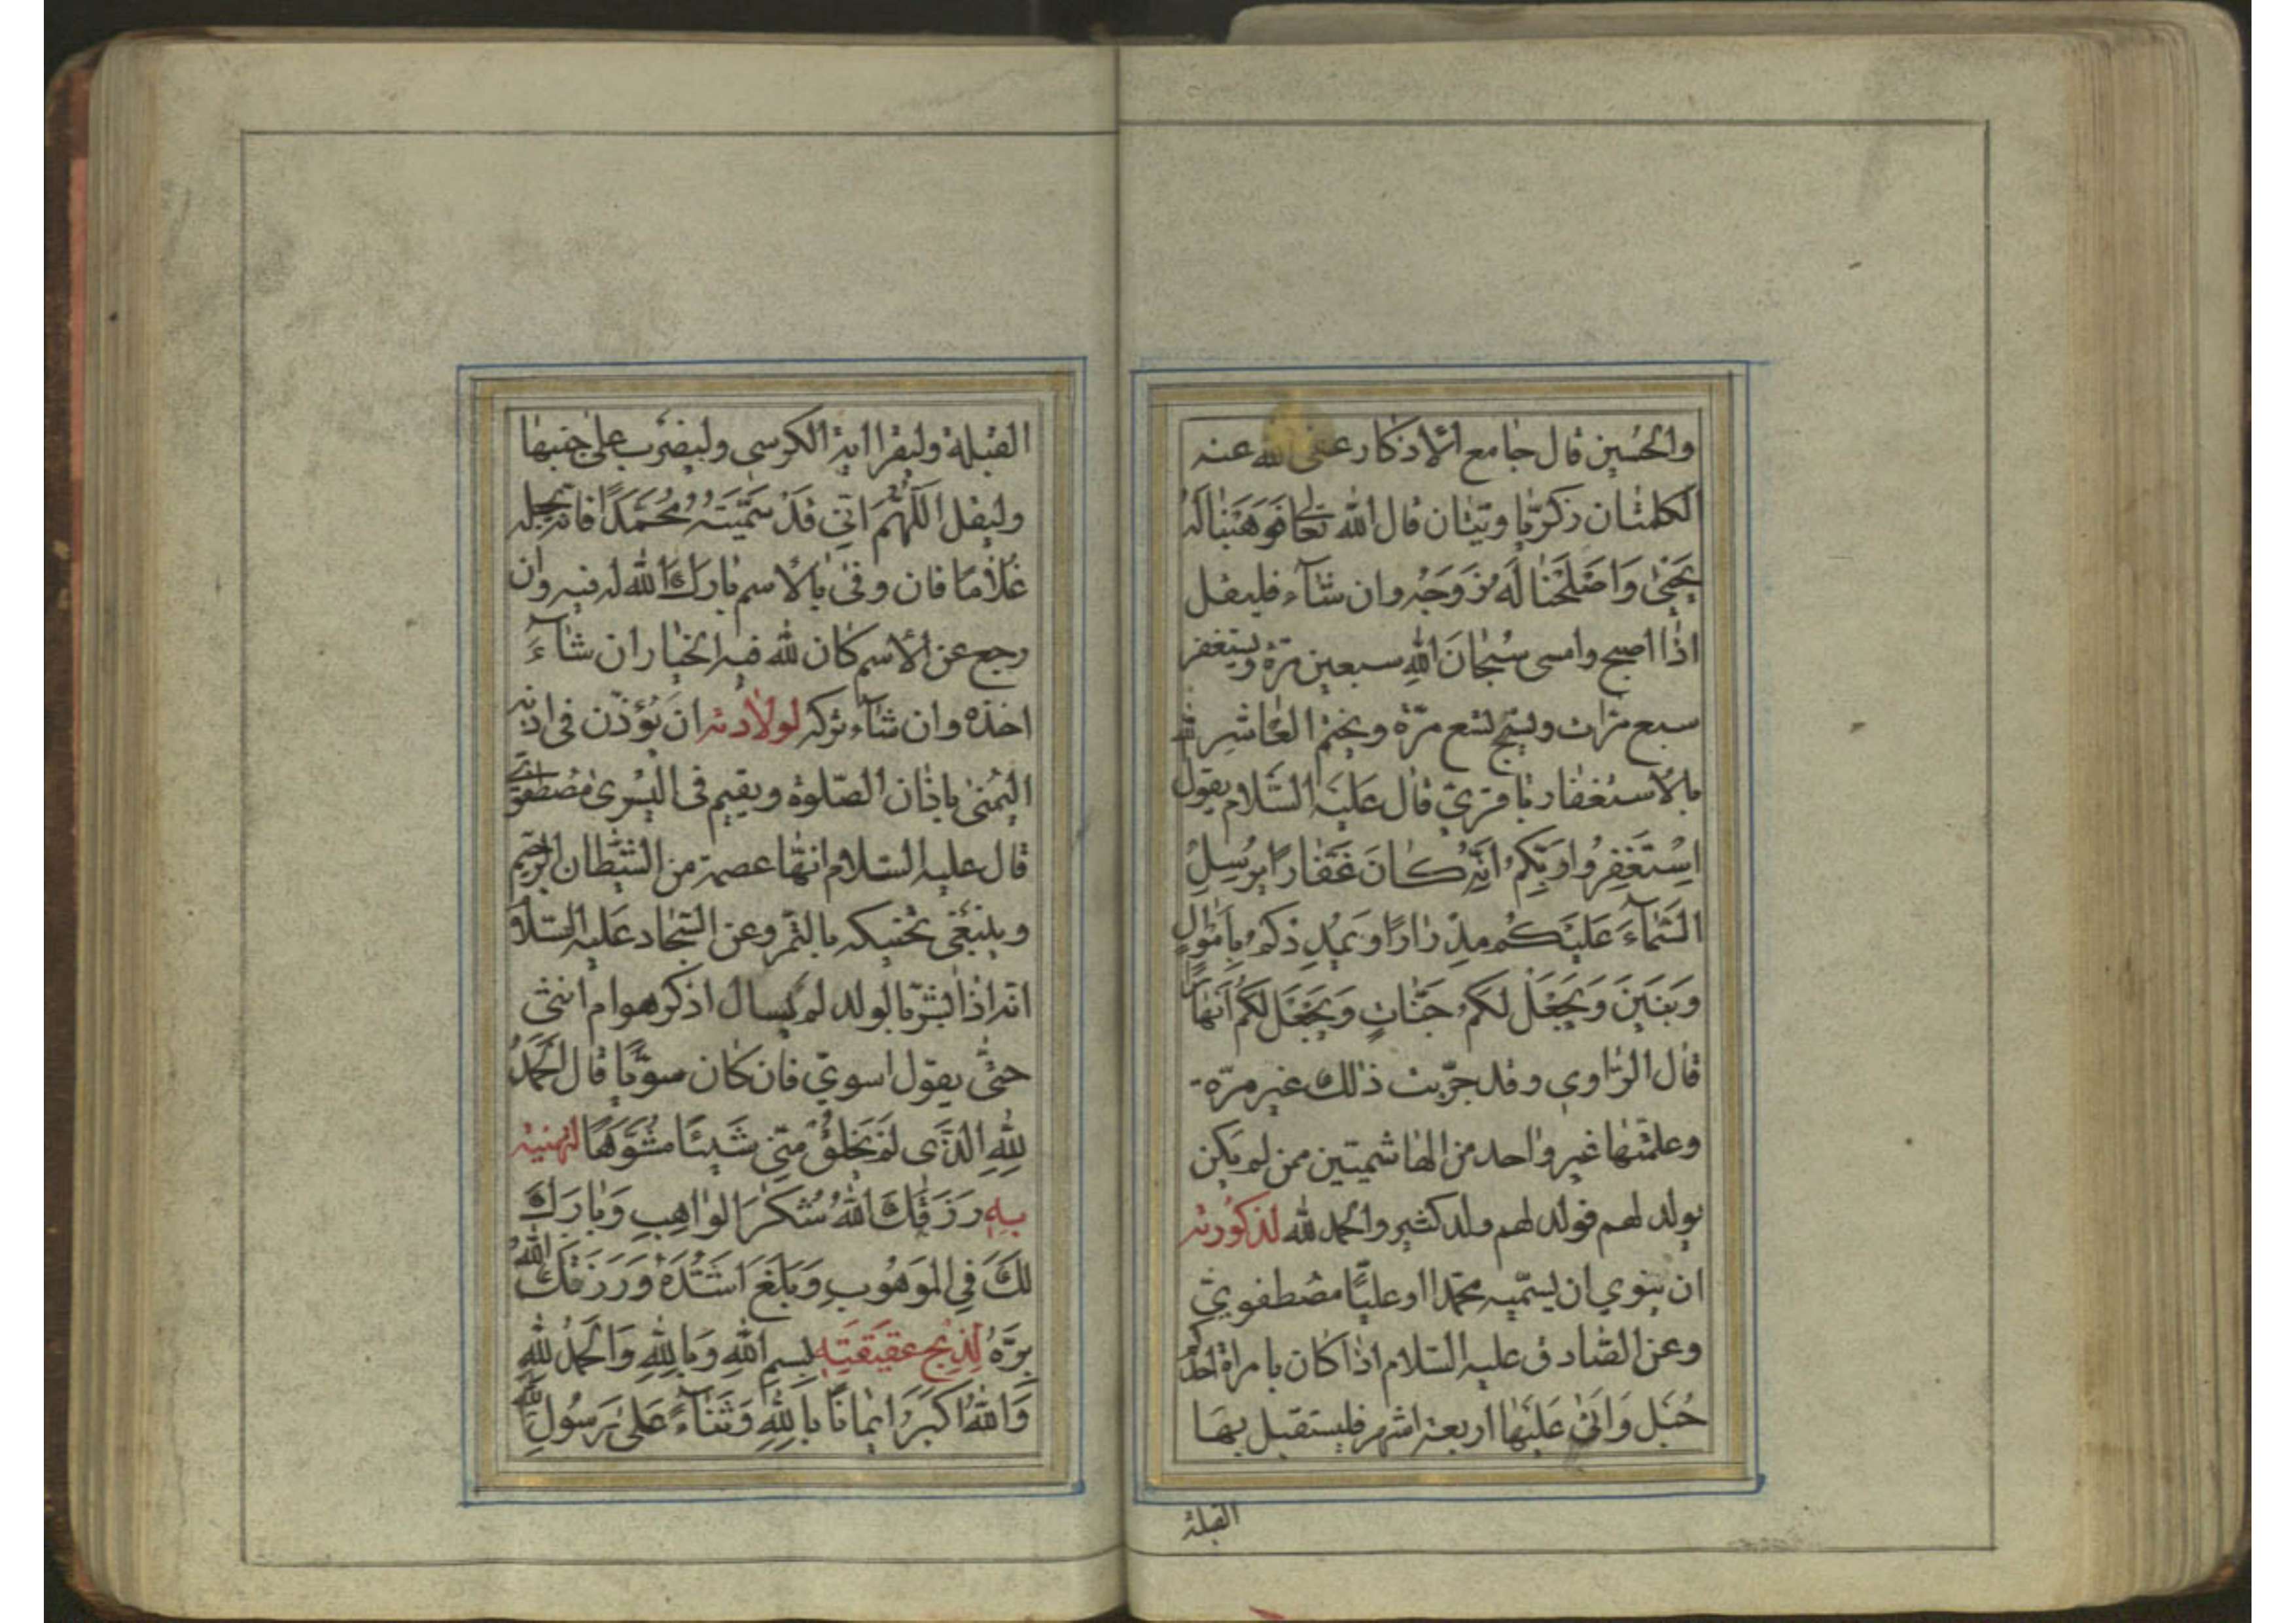 والحسين قال جامع الأذكار عفى الله عنه
الكلمتان زكريّا ويتيان قال الله تعالى فَوَهَبْنا لَهُ
يَحْيى وَاَصْلَحْنا لَهُ زَوْجَهُ وان شآء فليقل
اذا اصبح وامسى سُبْحانَ اللهِ سبعين مرّة ويستغفر
سبع مرّات ويسبّح تسع مرّة ويختم العاشرة
بالاستغفار باقريّ قال عَلَيْه السَّلام يقول
اِسْتَغْفِرُوا رَبَّكُمْ اِنَّهُ كانَ غَفّارًا يُرْسِلِ
السَّمآءَ عَلَيْكُمْ مِدْرارًا وَيُمْدِدْكُمْ بِاَمْوالٍ
وَبَنينَ وَيَجْعَلْ لَكُمْ جَنّاتٍ وَيَجْعَلْ لَكُمْ اَنْهارًا
قال الرّاوي وقد جرّبت ذلك غير مرّة
وعلمتها غير واحد من الهاشميّين ممن لم يكن
يولد لهم فولد لهم ولد كثير والحمد لله لذكورته
ان ينوي ان يسمّيه محمّدا او عليًّا مصطفويّ
وعن الصّادق عليه السّلام اذا كان بامراة احدكم
حُبَل وَاَتى عَلَيْها اربعة اشهر فليستقبل بها
القبلة
القبلة وليقرا اية الكرسي وليضرب على جنبها
وليقل اَللّهُمَّ اِنّي قَدْ سَمَّيْتُهُ مُحَمَّدًا فانه يجعله
غلاما فان وفى بالاسم بارك الله له فيه وان
رجع عن الاسم كان لله فيه الخيار ان شآءَ
اخذه وان شآء تركه لولادته ان يؤذّن فى اذنه
اليمنى باذان الصّلوة ويقيم فى اليسرى مصطفويّ
قال عليه السّلام انّها عصمة من الشّيطان الرّجيم
وينبغي تحنيكه بالتّمر وعن السّجّاد عليه السّلام
انّه اذا بشّر بالولد لم يسال اذكر هو ام انثى
حتّى يقول اسويّ فان كان سويًّا قال اَلْحَمْدُ
لِلّهِ الَّذى لَمْ يَخْلُقْ مِنّي شَيْئًا مُشَوَّهًا لتهنيته
بِهِ رَزَقَكَ اللهُ شُكْرَ الْواهِبِ وَبارَكَ
لَكَ فِي الْمَوْهُوبِ وَبَلَغَ اَشُدَّهُ وَرَزَقَكَ اللهُ
بِرَّهُ لِذبح عقيقتِه بِسْمِ اللهِ وَبِاللهِ وَالْحَمْدُ لِلّهِ
وَاللهُ اَكْبَرُ ايمانًا بِاللهِ وَثَنآءً عَلى رَسُولِ اللهِ